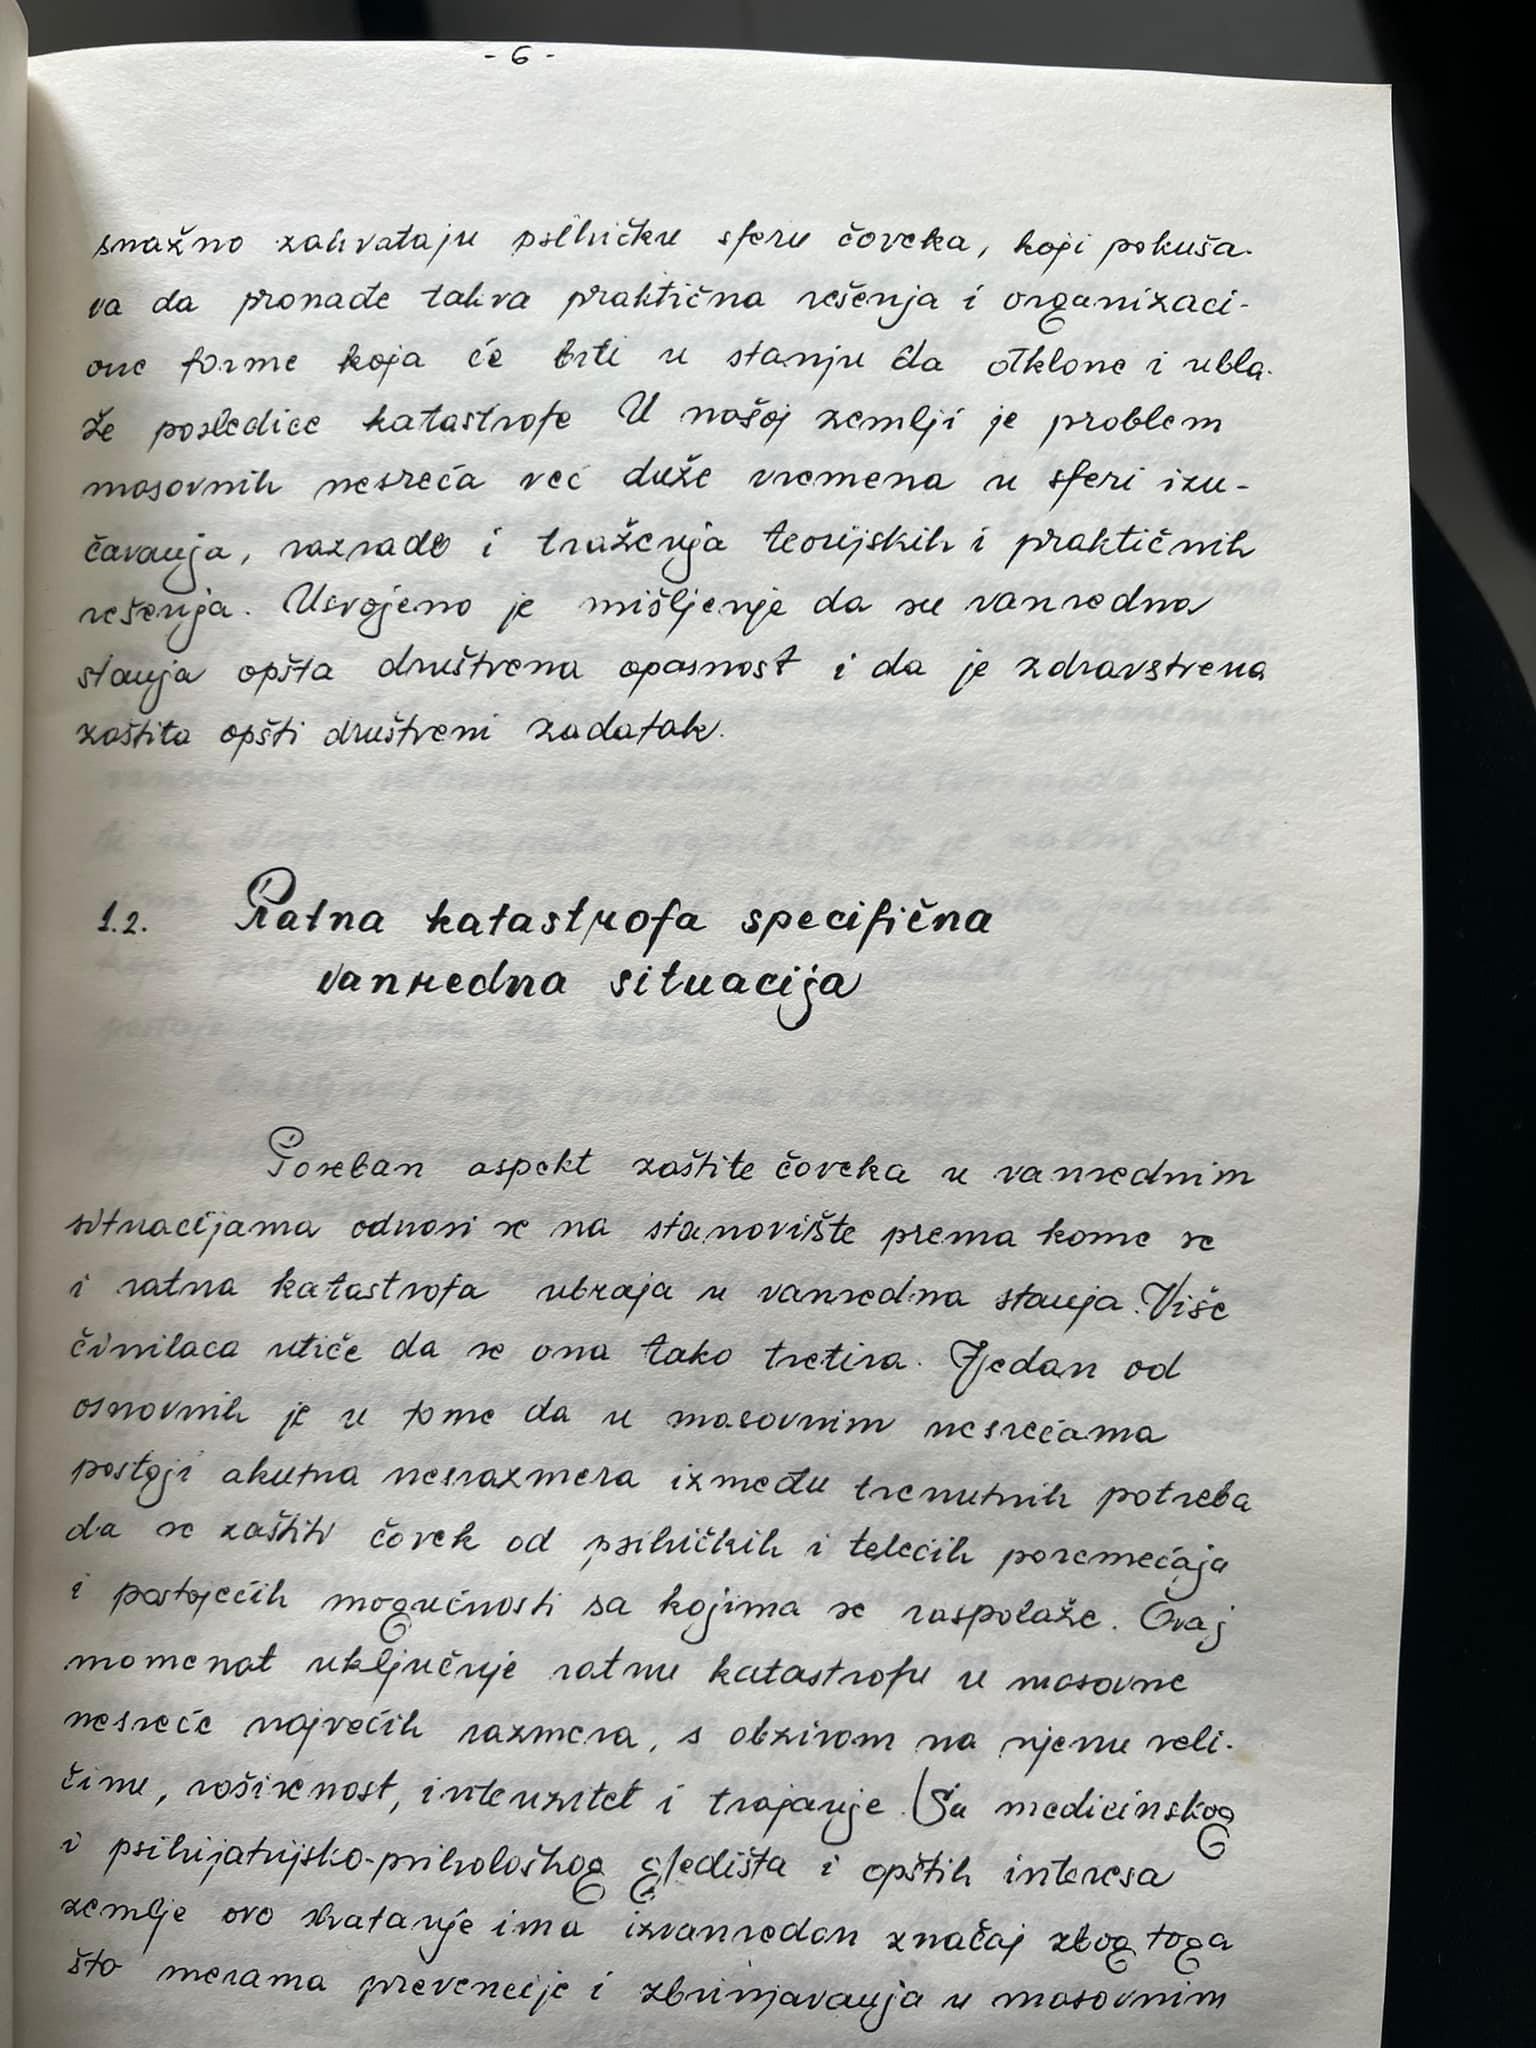 - 6 -
snažno zahvataju psihičku sferu čoveka, koji pokuša-
va da pronađe takva praktična rešenja i organizaci-
one forme koja će biti u stanju da otklone i ubla-
že posledice katastrofe U našoj zemlji je problem
masovnih nesreća već duže vremena u sferi izu-
čavanja, razrade i traženja teorijskih i praktičnih
rešenja. Usvojeno je mišljenje da su vanredna
stanja opšta društvena opasnost i da je zdravstvena
zaštita opšti društveni zadatak.
1.2. Ratna katastrofa specifična
vanredna situacija
Poseban aspekt zaštite čoveka u vanrednim
situacijama odnosi se na stanovište prema kome se
i ratna katastrofa ubraja u vanredna stanja. Više
činilaca utiče da se ona tako tretira. Jedan od
osnovnih je u tome da u masovnim nesrećama
postoji akutna nesrazmera između trenutnih potreba
da se zaštiti čovek od psihičkih i telećih poremećaja
i postojećih mogućnosti sa kojima se raspolaže. Ovaj
momenat uključuje ratnu katastrofu u masovne
nesreće najvećih razmera, s obzirom na njenu veli-
činu, raširenost, intenzitet i trajanje. Sa medicinskog
i psihijatrijsko-psihološkog gledišta i opštih interesa
zemlje ovo shvatanje ima izvanredan značaj zbog toga
što merama prevencije i zbrinjavanja u masovnim